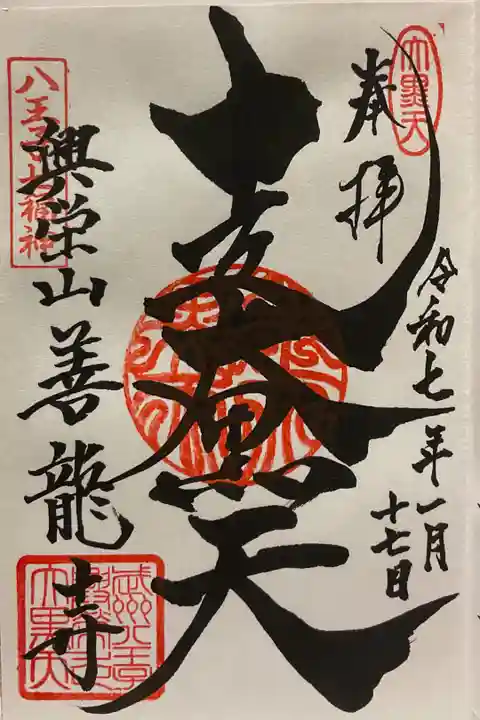 大黒天
奉拝
令和七年一月
十七日
走大黒天
八王子七福神
興栄山善龍寺